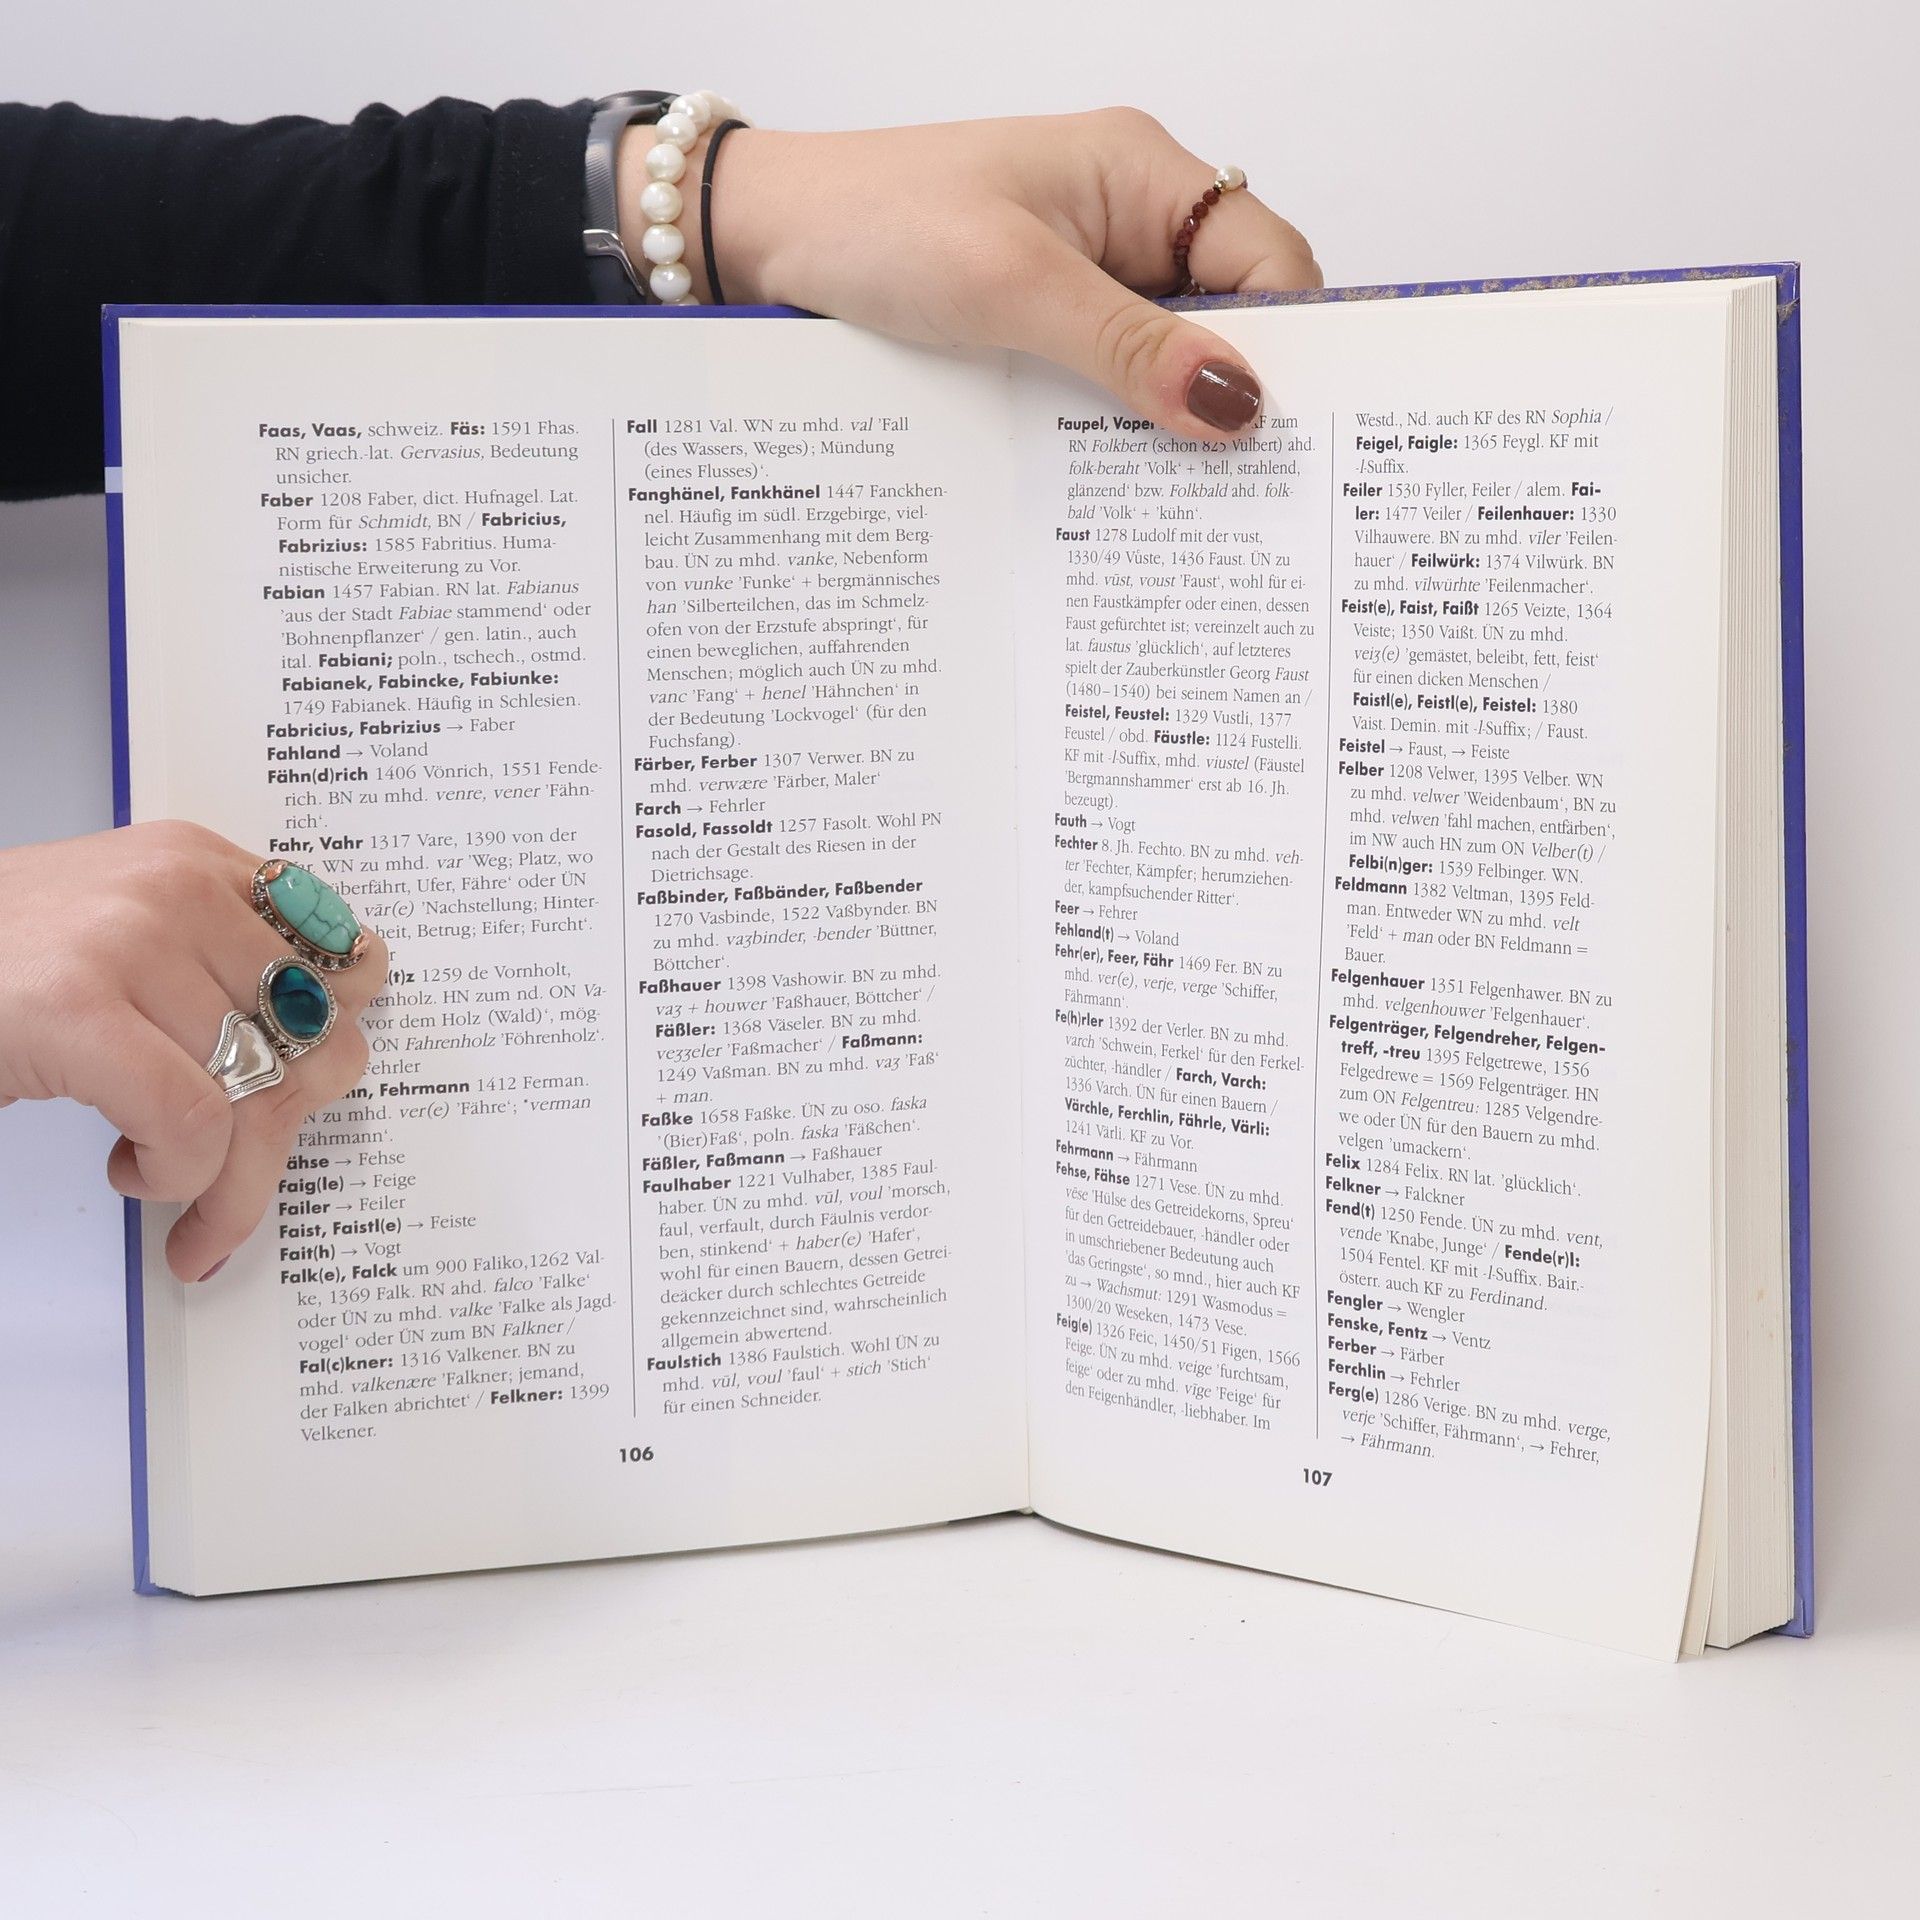 Faas, Vaas, schweiz. Fäs: 1591 Fhas.
RN griech.-lat. Gervasius, Bedeutung
unsicher.
Faber 1208 Faber, dict. Hufnagel. Lat.
Form für Schmidt, BN / Fabricius,
Fabrizius: 1585 Fabritius. Huma-
nistische Erweiterung zu Vor.
Fabian 1457 Fabian. RN lat. Fabianus
'aus der Stadt Fabiae stammend‘ oder
'Bohnenpflanzer‘ / gen. latin., auch
ital. Fabiani; poln., tschech., ostmd.
Fabianek, Fabincke, Fabiunke:
1749 Fabianek. Häufig in Schlesien.
Fabricius, Fabrizius → Faber
Fahland → Voland
Fähn(d)rich 1406 Vönrich, 1551 Fende-
rich. BN zu mhd. venre, vener 'Fähn-
rich‘.
Fahr, Vahr 1317 Vare, 1390 von der
WN zu mhd. var 'Weg; Platz, wo
überfährt, Ufer, Fähre‘ oder ÜN
vār(e) 'Nachstellung; Hinter-
heit, Betrug; Eifer; Furcht‘.
r
(t)z 1259 de Vornholt,
renholz. HN zum nd. ON Va-
'vor dem Holz (Wald)‘, mög-
ÖN Fahrenholz 'Föhrenholz‘.
Fehrler
nn, Fehrmann 1412 Ferman.
N zu mhd. ver(e) 'Fähre‘; *verman
Fährmann‘.
ähse → Fehse
Faig(le) → Feige
Failer → Feiler
Faist, Faistl(e) → Feiste
Fait(h) → Vogt
Falk(e), Falck um 900 Faliko,1262 Val-
ke, 1369 Falk. RN ahd. falco 'Falke‘
oder ÜN zu mhd. valke 'Falke als Jagd-
vogel‘ oder ÜN zum BN Falkner /
Fal(c)kner: 1316 Valkener. BN zu
mhd. valkenære 'Falkner; jemand,
der Falken abrichtet‘ / Felkner: 1399
Velkener.
Fall 1281 Val. WN zu mhd. val 'Fall
(des Wassers, Weges); Mündung
(eines Flusses)‘.
Fanghänel, Fankhänel 1447 Fanckhen-
nel. Häufig im südl. Erzgebirge, viel-
leicht Zusammenhang mit dem Berg-
bau. ÜN zu mhd. vanke, Nebenform
von vunke 'Funke‘ + bergmännisches
han 'Silberteilchen, das im Schmelz-
ofen von der Erzstufe abspringt‘, für
einen beweglichen, auffahrenden
Menschen; möglich auch ÜN zu mhd.
vanc 'Fang‘ + henel 'Hähnchen‘ in
der Bedeutung 'Lockvogel‘ (für den
Fuchsfang).
Färber, Ferber 1307 Verwer. BN zu
mhd. verwære 'Färber, Maler‘
Farch → Fehrler
Fasold, Fassoldt 1257 Fasolt. Wohl PN
nach der Gestalt des Riesen in der
Dietrichsage.
Faßbinder, Faßbänder, Faßbender
1270 Vasbinde, 1522 Vaßbynder. BN
zu mhd. vaʒbinder, -bender 'Büttner,
Böttcher‘.
Faßhauer 1398 Vashowir. BN zu mhd.
vaʒ + houwer 'Faßhauer, Böttcher‘ /
Fäßler: 1368 Väseler. BN zu mhd.
veʒʒeler 'Faßmacher‘ / Faßmann:
1249 Vaßman. BN zu mhd. vaʒ 'Faß‘
+ man.
Faßke 1658 Faßke. ÜN zu oso. faska
'(Bier)Faß‘, poln. faska 'Fäßchen‘.
Fäßler, Faßmann → Faßhauer
Faulhaber 1221 Vulhaber, 1385 Faul-
haber. ÜN zu mhd. vūl, voul 'morsch,
faul, verfault, durch Fäulnis verdor-
ben, stinkend‘ + haber(e) 'Hafer‘,
wohl für einen Bauern, dessen Getrei-
deäcker durch schlechtes Getreide
gekennzeichnet sind, wahrscheinlich
allgemein abwertend.
Faulstich 1386 Faulstich. Wohl ÜN zu
mhd. vūl, voul 'faul‘ + stich 'Stich‘
für einen Schneider.
106
Faupel, Vopel KF zum
RN Folkbert (schon 825 Vulbert) ahd.
folk-beraht 'Volk‘ + 'hell, strahlend,
glänzend‘ bzw. Folkbald ahd. folk-
bald 'Volk‘ + 'kühn‘.
Faust 1278 Ludolf mit der vust,
1330/49 Vůste, 1436 Faust. ÜN zu
mhd. vūst, voust 'Faust‘, wohl für ei-
nen Faustkämpfer oder einen, dessen
Faust gefürchtet ist; vereinzelt auch zu
lat. faustus 'glücklich‘, auf letzteres
spielt der Zauberkünstler Georg Faust
(1480–1540) bei seinem Namen an /
Feistel, Feustel: 1329 Vustli, 1377
Feustel / obd. Fäustle: 1124 Fustelli.
KF mit -l-Suffix, mhd. viustel (Fäustel
'Bergmannshammer‘ erst ab 16. Jh.
bezeugt).
Fauth → Vogt
Fechter 8. Jh. Fechto. BN zu mhd. veh-
ter 'Fechter, Kämpfer; herumziehen-
der, kampfsuchender Ritter‘.
Feer → Fehrer
Fehland(t) → Voland
Fehr(er), Feer, Fähr 1469 Fer. BN zu
mhd. ver(e), verje, verge 'Schiffer,
Fährmann‘.
Fe(h)rler 1392 der Verler. BN zu mhd.
varch 'Schwein, Ferkel‘ für den Ferkel-
züchter, -händler / Farch, Varch:
1336 Varch. ÜN für einen Bauern /
Värchle, Ferchlin, Fährle, Värli:
1241 Värli. KF zu Vor.
Fehrmann → Fährmann
Fehse, Fähse 1271 Vese. ÜN zu mhd.
vëse 'Hülse des Getreidekorns, Spreu‘
für den Getreidebauer, -händler oder
in umschriebener Bedeutung auch
'das Geringste‘, so mnd., hier auch KF
zu → Wachsmut: 1291 Wasmodus =
1300/20 Weseken, 1473 Vese.
Feig(e) 1326 Feic, 1450/51 Figen, 1566
Feige. ÜN zu mhd. veige 'furchtsam,
feige‘ oder zu mhd. vīge 'Feige‘ für
den Feigenhändler, -liebhaber. Im
Westd., Nd. auch KF des RN Sophia /
Feigel, Faigle: 1365 Feygl. KF mit
-l-Suffix.
Feiler 1530 Fyller, Feiler / alem. Fai-
ler: 1477 Veiler / Feilenhauer: 1330
Vilhauwere. BN zu mhd. viler 'Feilen-
hauer‘ / Feilwürk: 1374 Vilwürk. BN
zu mhd. vīlwürhte 'Feilenmacher‘.
Feist(e), Faist, Faißt 1265 Veizte, 1364
Veiste; 1350 Vaißt. ÜN zu mhd.
veiʒ(e) 'gemästet, beleibt, fett, feist‘
für einen dicken Menschen /
Faistl(e), Feistl(e), Feistel: 1380
Vaist. Demin. mit -l-Suffix; / Faust.
Feistel → Faust, → Feiste
Felber 1208 Velwer, 1395 Velber. WN
zu mhd. velwer 'Weidenbaum‘, BN zu
mhd. velwen 'fahl machen, entfärben‘,
im NW auch HN zum ON Velber(t) /
Felbi(n)ger: 1539 Felbinger. WN.
Feldmann 1382 Veltman, 1395 Feld-
man. Entweder WN zu mhd. velt
'Feld‘ + man oder BN Feldmann =
Bauer.
Felgenhauer 1351 Felgenhawer. BN zu
mhd. velgenhouwer 'Felgenhauer‘.
Felgenträger, Felgendreher, Felgen-
treff, -treu 1395 Felgetrewe, 1556
Felgedrewe = 1569 Felgenträger. HN
zum ON Felgentreu: 1285 Velgendre-
we oder ÜN für den Bauern zu mhd.
velgen 'umackern‘.
Felix 1284 Felix. RN lat. 'glücklich‘.
Felkner → Falckner
Fend(t) 1250 Fende. ÜN zu mhd. vent,
vende 'Knabe, Junge‘ / Fende(r)l:
1504 Fentel. KF mit -l-Suffix. Bair.-
österr. auch KF zu Ferdinand.
Fengler → Wengler
Fenske, Fentz → Ventz
Ferber → Färber
Ferchlin → Fehrler
Ferg(e) 1286 Verige. BN zu mhd. verge,
verje 'Schiffer, Fährmann‘, → Fehrer,
→ Fährmann.
107